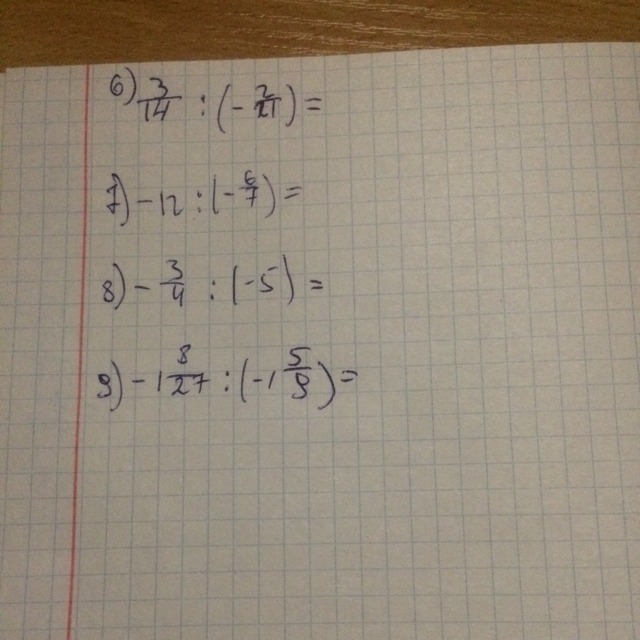 6) 3/14 : (- 2/21) =
7) - 12 : (- 6/7) =
8) - 3/4 : (- 5) =
9) - 1 8/27 : (- 1 5/9) =